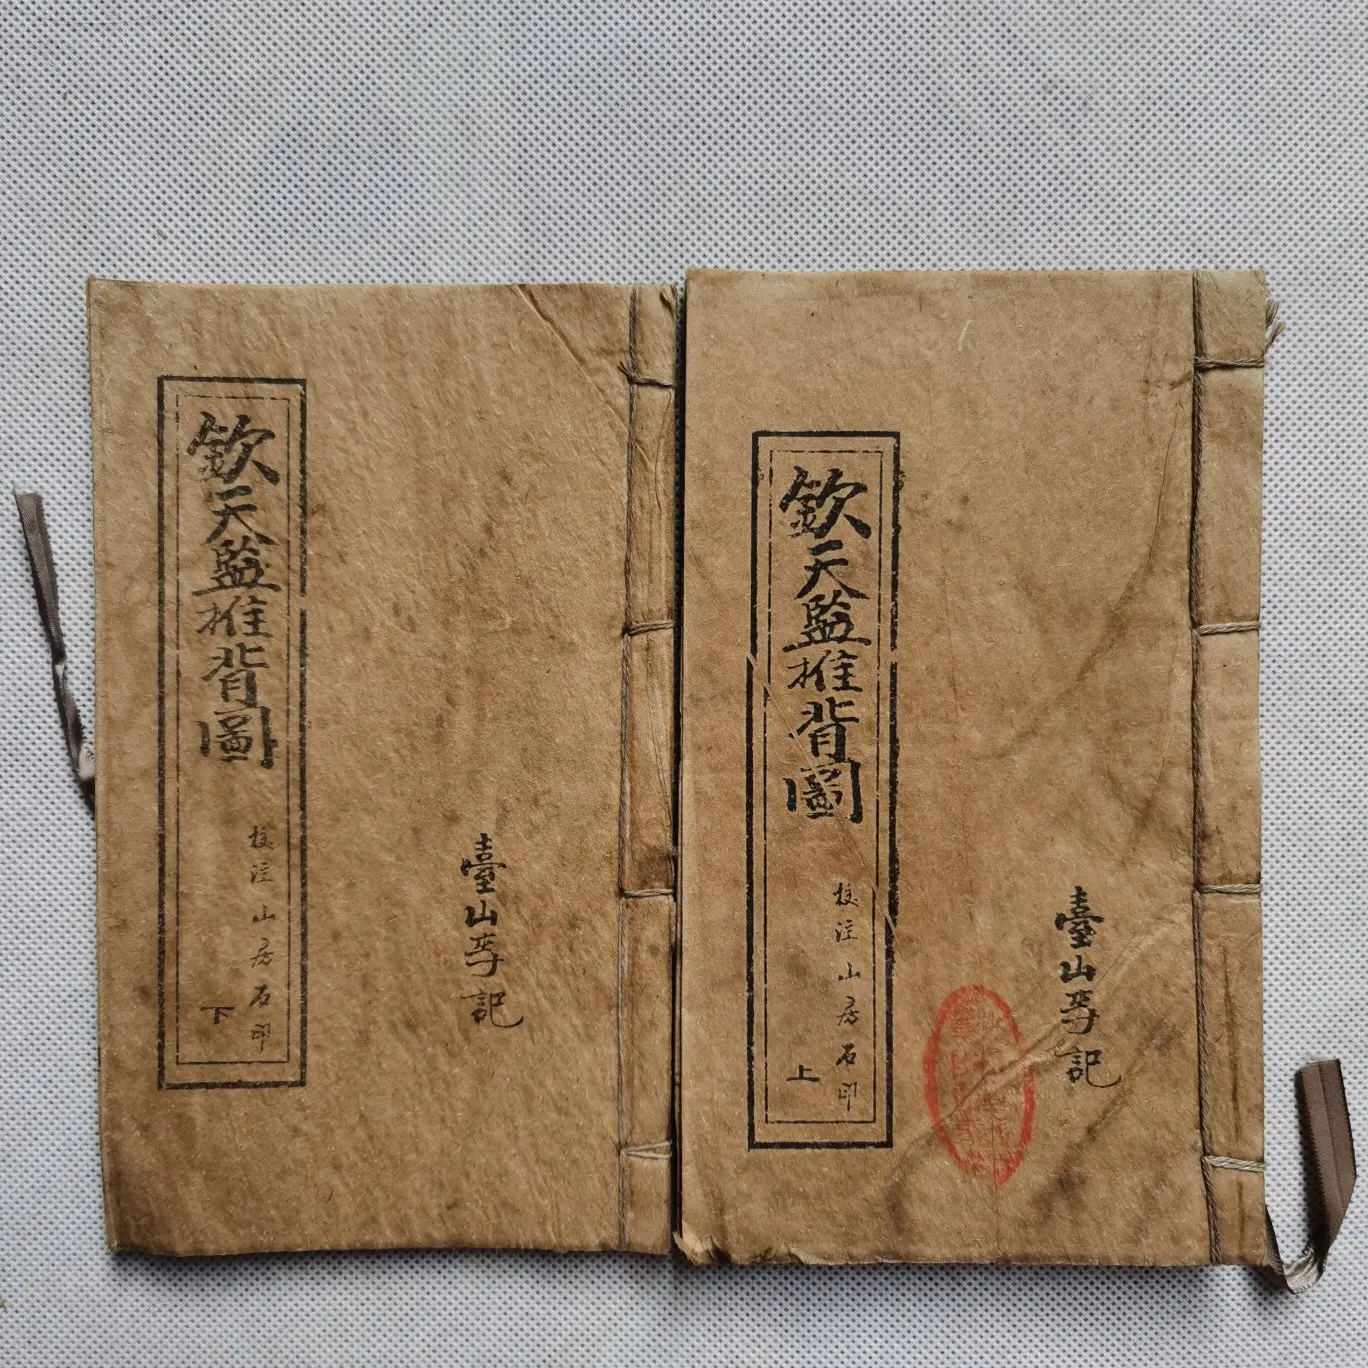 臺山李記
欽天監推背圖
校注山房石印
上
臺山李記
欽天監推背圖
校注山房石印
下